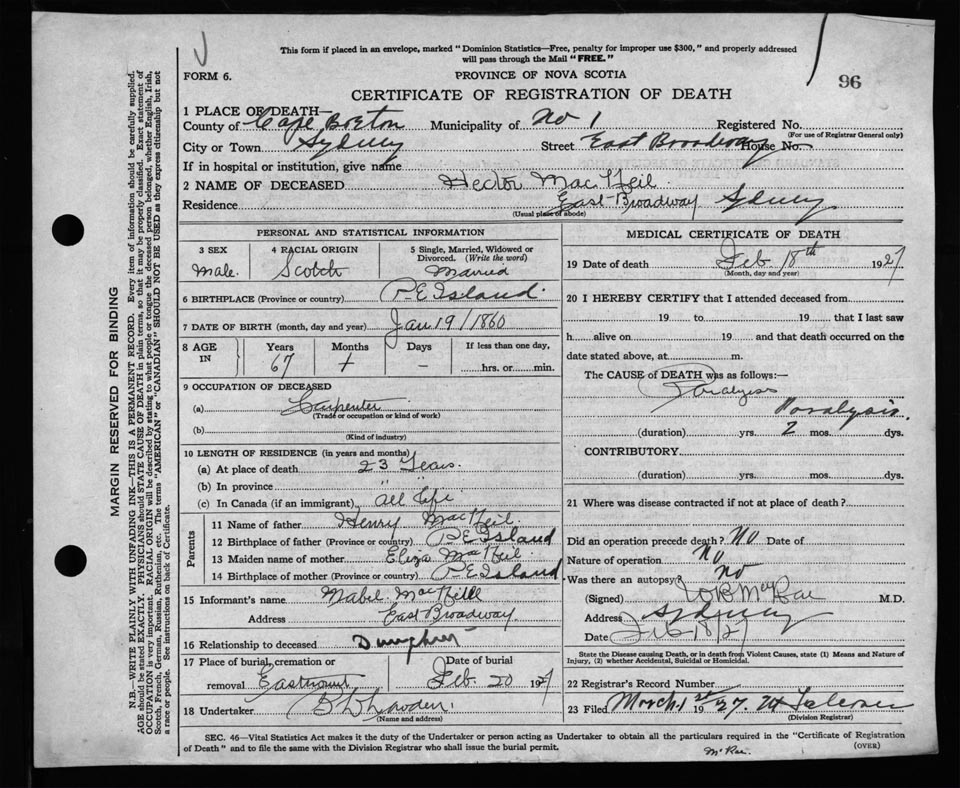 This form if placed in an envelope, marked "Dominion Statistics—Free, penalty for improper use $300," and properly addressed
will pass through the Mail "FREE."
FORM 6.
PROVINCE OF NOVA SCOTIA
96
CERTIFICATE OF REGISTRATION OF DEATH
1 PLACE OF DEATH
County of Cape Breton Municipality of No 1 Registered No.
(For use of Registrar General only)
City or Town Sydney Street East Broadway House No.
If in hospital or institution, give name
2 NAME OF DECEASED Hector MacNeil
Residence East Broadway Sydney
(Usual place of abode)
MARGIN RESERVED FOR BINDING
N.B.—WRITE PLAINLY WITH UNFADING INK—THIS IS A PERMANENT RECORD. Every item of information should be carefully supplied.
AGE should be stated EXACTLY. PHYSICIANS should STATE CAUSE OF DEATH in plain terms, so that it may be properly classified. Exact statement of
OCCUPATION is very important. RACIAL ORIGIN will be described by stating to what people or tongue the deceased person belonged, whether English, Irish,
Scotch, French, German, Russian, Ruthenian, etc. The terms "AMERICAN" or "CANADIAN" SHOULD NOT BE USED as they express citizenship but not
a race or people. See instructions on back of Certificate.
PERSONAL AND STATISTICAL INFORMATION
3 SEX 4 RACIAL ORIGIN 5 Single, Married, Widowed or
Divorced. (Write the word)
Male Scotch Married
6 BIRTHPLACE (Province or country) P E Island
7 DATE OF BIRTH (month, day and year) Jan 19/1860
8 AGE IN Years Months Days If less than one day,
67 1 — hrs. or min.
9 OCCUPATION OF DECEASED
(a) Carpenter
(Trade or occupation or kind of work)
(b)
(Kind of industry)
10 LENGTH OF RESIDENCE (in years and months)
(a) At place of death 23 Years.
(b) In province " "
(c) In Canada (if an immigrant) all life
Parents
11 Name of father Henry MacNeil
12 Birthplace of father (Province or country) P E Island
13 Maiden name of mother Eliza MacNeil
14 Birthplace of mother (Province or country) P E Island
15 Informant's name Mabel MacNeil
Address East Broadway
16 Relationship to deceased Daughter
17 Place of burial, cremation or Date of burial
removal Eastmount Feb. 20 1927
18 Undertaker
(Name and address)
MEDICAL CERTIFICATE OF DEATH
19 Date of death Feb 18th 1927
(Month, day and year)
20 I HEREBY CERTIFY that I attended deceased from
19 to 19 that I last saw
h alive on 19 and that death occurred on the
date stated above, at m.
The CAUSE of DEATH was as follows:—
Paralysis
Paralysis.
(duration) yrs. 2 mos. dys.
CONTRIBUTORY
(duration) yrs. mos. dys.
21 Where was disease contracted if not at place of death?
Did an operation precede death? No Date of
Nature of operation No
Was there an autopsy? No
(Signed) MacRae M.D.
Address Sydney
Date Feb 18/27
State the Disease causing Death, or in death from Violent Causes, state (1) Means and Nature of
Injury, (2) whether Accidental, Suicidal or Homicidal.
22 Registrar's Record Number
23 Filed March 1st 1927.
(Division Registrar)
SEC. 46—Vital Statistics Act makes it the duty of the Undertaker or person acting as Undertaker to obtain all the particulars required in the "Certificate of Registration
of Death" and to file the same with the Division Registrar who shall issue the burial permit.
(OVER)
McRae.